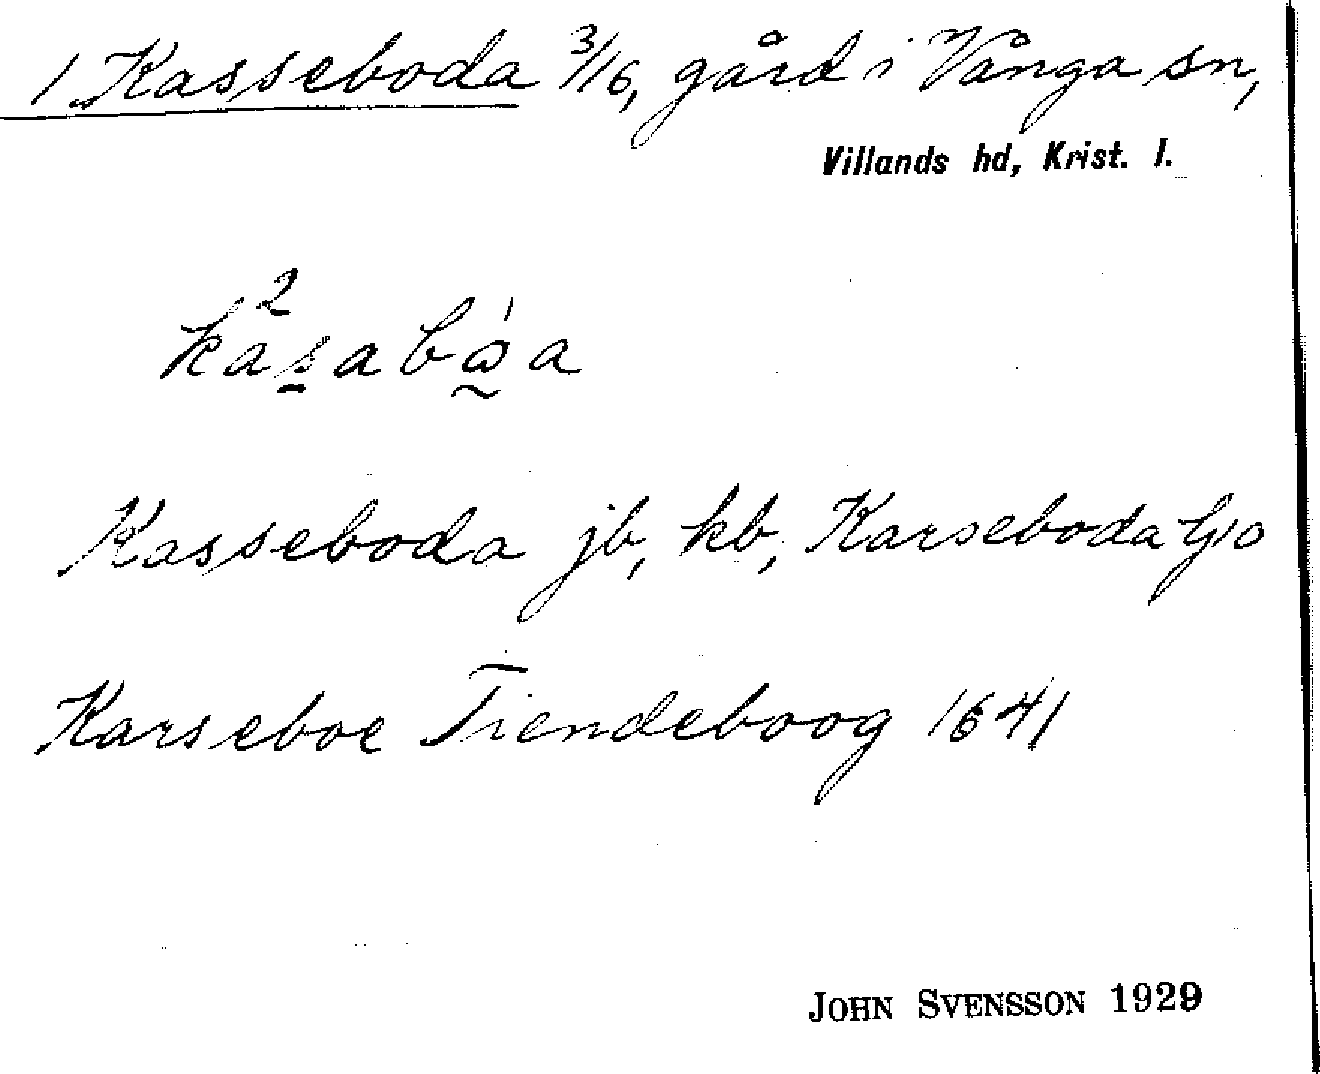 1 Kasseboda 3/16, gård i Vånga sn,
Villands hd, Krist. l.
Kasseboda jb, kb, Karseboda Gjo
Karseboe Tiendeboog 1641
JOHN SVENSSON 1929